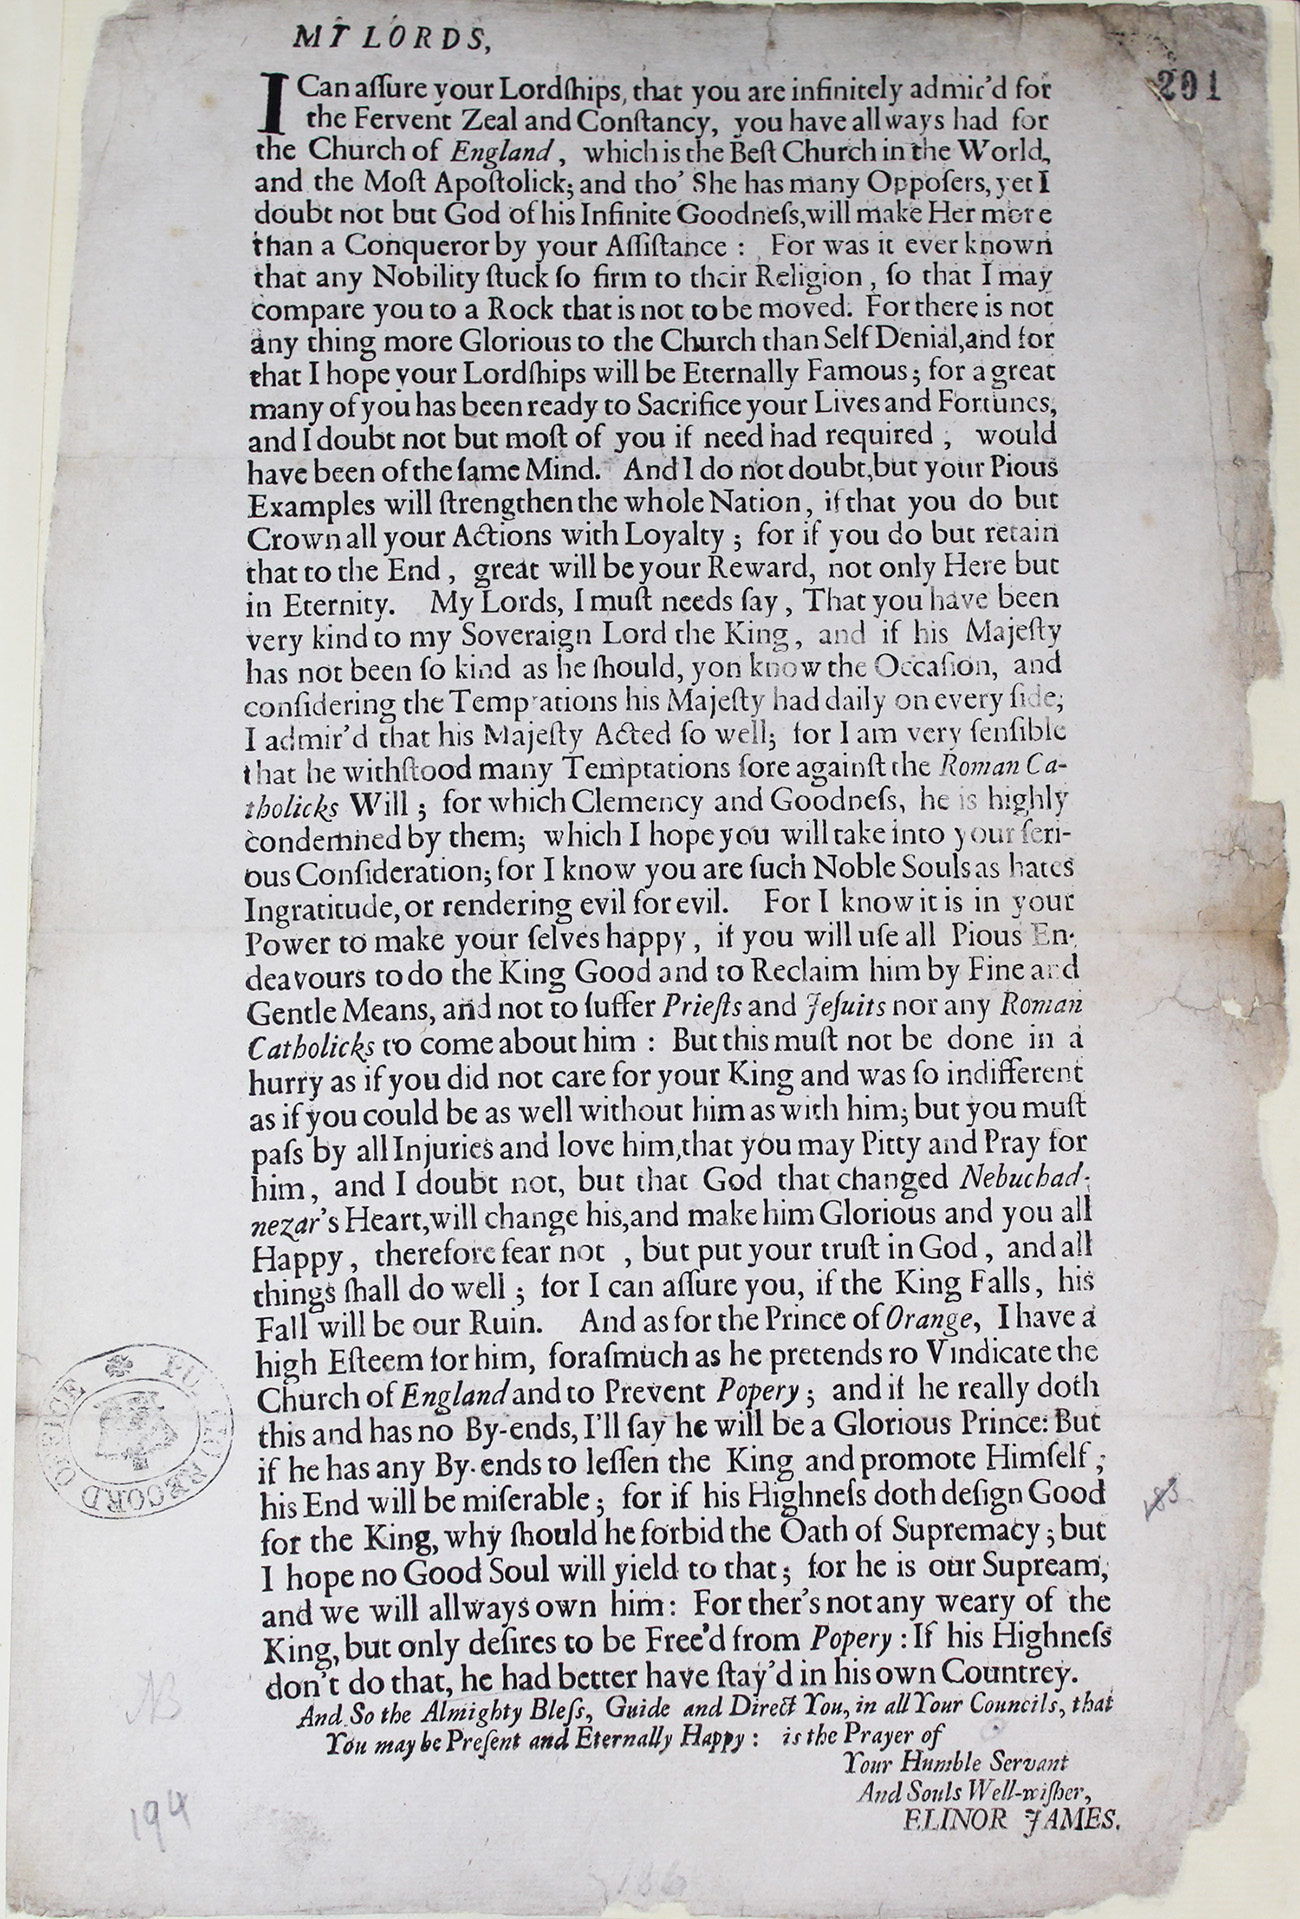 MY LORDS,
201
I Can aſſure your Lordſhips, that you are infinitely admir'd for
the Fervent Zeal and Conſtancy, you have allways had for
the Church of England, which is the Beſt Church in the World,
and the Moſt Apoſtolick; and tho' She has many Oppoſers, yet I
doubt not but God of his Infinite Goodneſs, will make Her more
than a Conqueror by your Aſſiſtance: For was it ever known
that any Nobility ſtuck ſo firm to their Religion, ſo that I may
compare you to a Rock that is not to be moved. For there is not
any thing more Glorious to the Church than Self Denial, and for
that I hope your Lordſhips will be Eternally Famous; for a great
many of you has been ready to Sacrifice your Lives and Fortunes,
and I doubt not but moſt of you if need had required, would
have been of the ſame Mind. And I do not doubt, but your Pious
Examples will ſtrengthen the whole Nation, if that you do but
Crown all your Actions with Loyalty; for if you do but retain
that to the End, great will be your Reward, not only Here but
in Eternity. My Lords, I muſt needs ſay, That you have been
very kind to my Soveraign Lord the King, and if his Majeſty
has not been ſo kind as he ſhould, yon know the Occaſion, and
conſidering the Temptations his Majeſty had daily on every ſide;
I admir'd that his Majeſty Acted ſo well; for I am very ſenſible
that he withſtood many Temptations ſore againſt the Roman Ca-
tholicks Will; for which Clemency and Goodneſs, he is highly
condemned by them; which I hope you will take into your ſeri-
ous Conſideration; for I know you are ſuch Noble Souls as hates
Ingratitude, or rendering evil for evil. For I know it is in your
Power to make your ſelves happy, if you will uſe all Pious En-
deavours to do the King Good and to Reclaim him by Fine and
Gentle Means, and not to ſuffer Prieſts and Jeſuits nor any Roman
Catholicks to come about him: But this muſt not be done in a
hurry as if you did not care for your King and was ſo indifferent
as if you could be as well without him as with him; but you muſt
paſs by all Injuries and love him, that you may Pitty and Pray for
him, and I doubt not, but that God that changed Nebuchad-
nezar's Heart, will change his, and make him Glorious and you all
Happy, therefore fear not, but put your truſt in God, and all
things ſhall do well; for I can aſſure you, if the King Falls, his
Fall will be our Ruin. And as for the Prince of Orange, I have a
high Eſteem for him, foraſmuch as he pretends ro Vindicate the
Church of England and to Prevent Popery; and if he really doth
this and has no By-ends, I'll ſay he will be a Glorious Prince: But
if he has any By-ends to leſſen the King and promote Himſelf;
his End will be miſerable; for if his Highneſs doth deſign Good
for the King, why ſhould he forbid the Oath of Supremacy; but
I hope no Good Soul will yield to that; for he is our Supream,
and we will allways own him: For ther's not any weary of the
King, but only deſires to be Free'd from Popery: If his Highneſs
don't do that, he had better have ſtay'd in his own Countrey.
And So the Almighty Bleſs, Guide and Direct You, in all Your Councils, that
You may be Preſent and Eternally Happy: is the Prayer of
Your Humble Servant
And Souls Well-wiſher,
ELINOR JAMES.
RECORD OFFICE
183
194
186